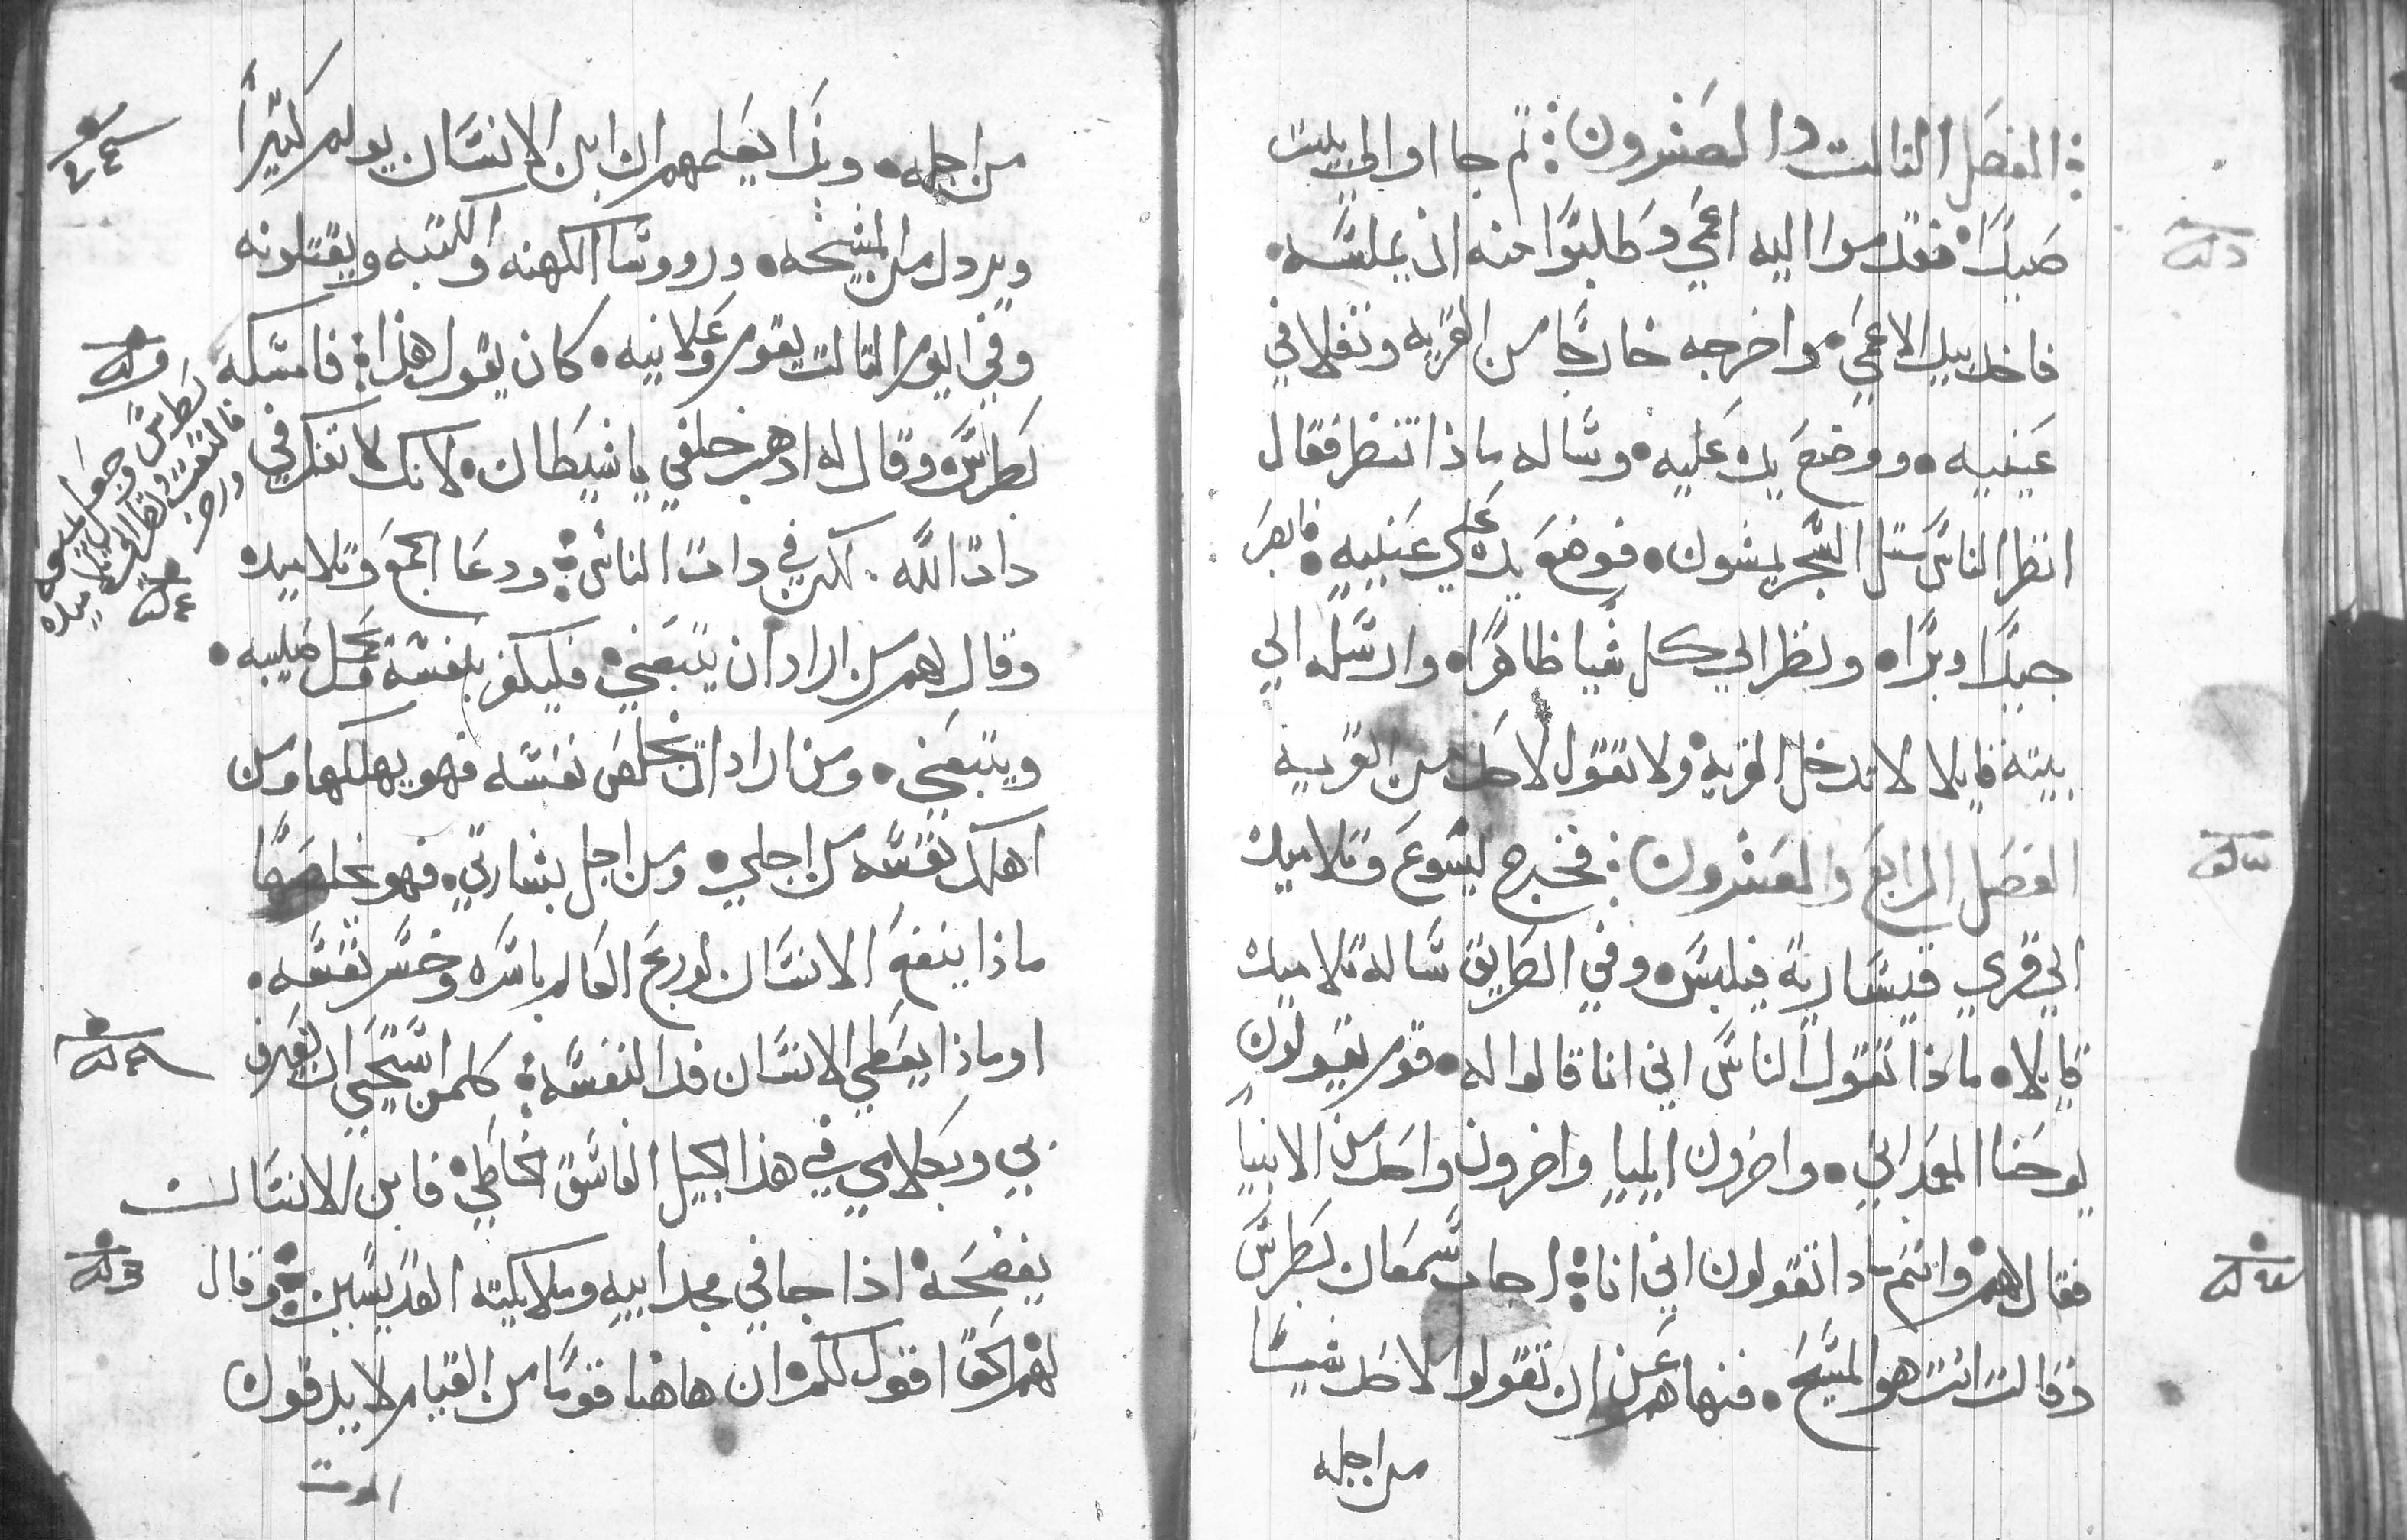 الفصل الثالث والعشرون ثم جااوا الي بيت
صيدا فقدموا اليه اعمي وطلبوا منه ان يلمسه
فاخد بيد الاعمي واخرجه خارجا من القريه وتفل في
عينيه ووضع يده عليه وساله ماذا تنظر فقال
انظر الناس مثل الشجر يمشون فوضع يده علي عينيه فابصر
جيدا وبرا ونظر الي كل شيا ظاهرا وارسله الي
بيته قايلا لا تدخل القريه ولا تقول لاحد من القريه
الفصل الرابع والعشرون فخرج يسوع وتلاميده
الي قري قيساريه فيلبس وفي الطريق سال تلاميده
قايلا ماذا تقول الناس اني انا قالوا له قوم يقولون
يوحنا المعمداني واخرون ايليا واخرون واحد من الانبيا
فقال لهم وانتم ماذا تقولون اني انا اجاب سمعان بطرس
وقال انت هو المسيح فنهاهم عن ان تقولوا لاحد شيا
من اجله
من اجله وبدا يعلمهم ان ابن الانسان يولم كثيرا
ويردل من المشيخه وروسا الكهنه والكتبه ويقتلونه
وفي اليوم الثالث يقوم وعلانيه كان يقول هذا فامسكه
بطرس وقال له ادهب خلفي يا شيطان لانك لا تفكر في
بطرس وجعل يمنعه
فالتفت ونظر الي تلاميده
وزجر
ذات الله لكن في ذات الناس ودعا الجمع وتلاميده
وقال لهم من اراد ان يتبعني فليكفر بنفسه ويحمل صليبه
ويتبعني ومن اراد ان يخلص نفسه فهو يهلكها ومن
اهلك نفسه من اجلي ومن اجل بشارتي فهو يخلصها
ماذا ينفع الانسان لو ربح العالم باسره وخسر نفسه
او ماذا يعطي الانسان فدا لنفسه كلمن استحيي ان يعترف
بي وبكلامي في هذا الجيل الفاسق الخاطي فابن الانسان
يفضحه اذا جا في مجد ابيه وملايكته القديسين وقال
لهم الحق اقول لكم ان هاهنا قوما من القيام لا يدقون
الموت